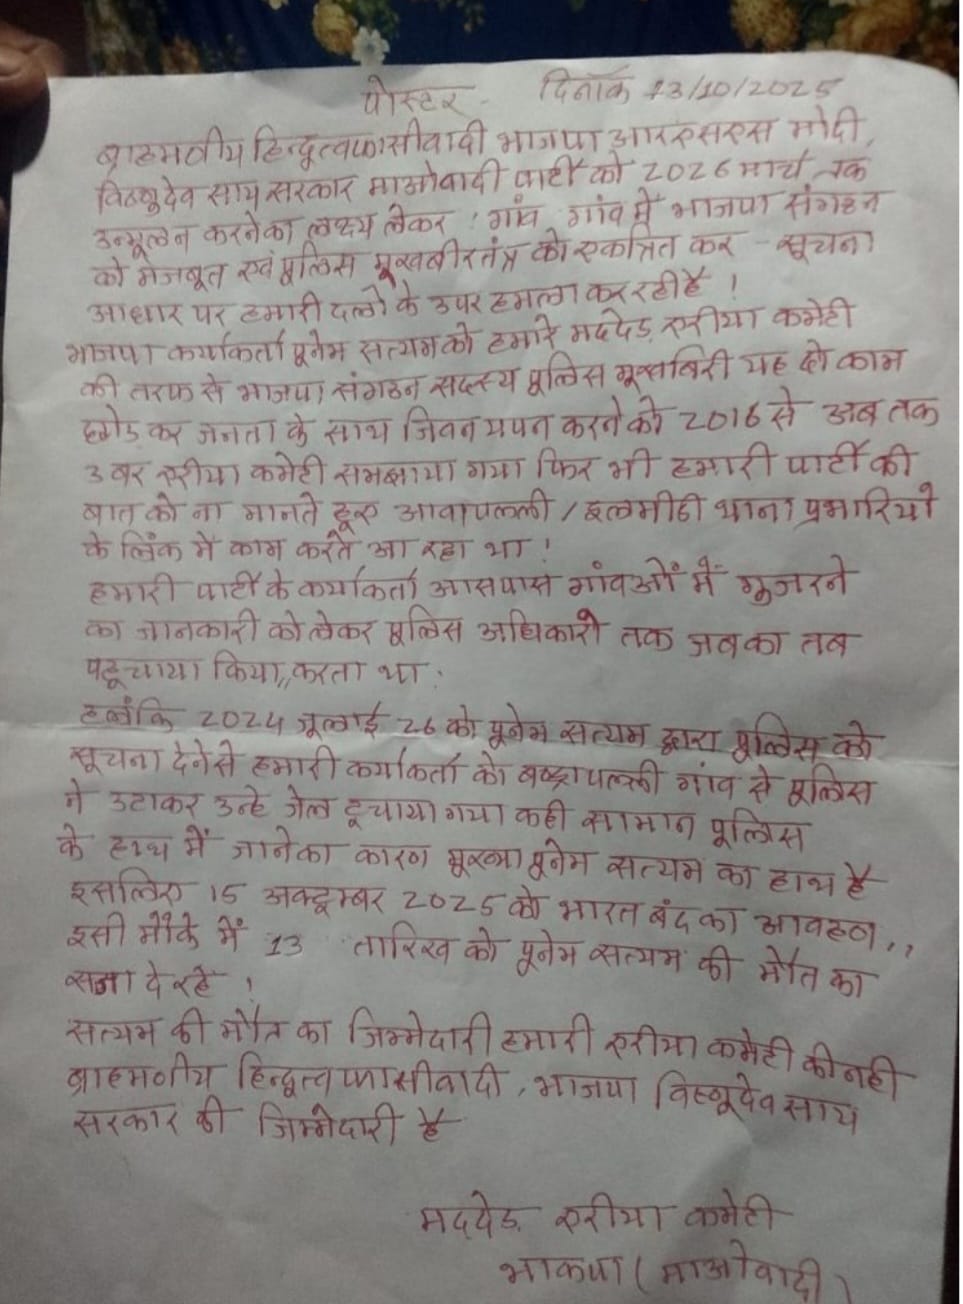 पोस्टर - दिनाँक 13/10/2025
ब्राहमणीय हिन्दुत्वफासीवादी भाजपा आरएसएस मोदी,
विष्णुदेव साय सरकार माओवादी पार्टी को 2026 मार्च तक
उन्मूलन करनेका लक्ष्य लेकर गांव गांव में भाजपा संगठन
को मजबूत एवं पूलिस मूखबीरतंत्र को एकत्रित कर - सूचना
आधार पर हमारी दलो के उपर हमला कर रही है !
भाजपा कर्याकर्ता पूनेम सत्यमको हमारे मददेड़ एरीया कमेटी
की तरफ से भाजपा संगठन सदस्य पूलिस मूखबिरी यह दो काम
छोड़ कर जनता के साथ जिवन यपन करने को 2016 से अब तक
3 बर एरीया कमेटी समझाया गया फिर भी हमारी पार्टी की
बात को ना मानते हूए आवापल्ली / इलमीडी थाना प्रभारियो
के लिंक में काम करते आ रहा था !
हमारी पार्टी के कर्याकर्ता आसपास गांवओं में गुजरने
का जानकारी को लेकर पूलिस अधिकारी तक जबका तब
पहूचाया किया,, करता था .
हलंकि 2024 जूलाई 26 को पूनेम सत्यम द्वारा पूलिस को
सूचना देने से हमारी कर्याकर्ता को गांव से पूलिस
ने उठाकर उन्हे जेल दूचाया गया कही सामान पूलिस
के हाथ में जानेका कारण मूख्या पूनेम सत्यम का हाथ है
इसलिए 15 अक्टूम्बर 2025 को भारत बंद का आवहण,,
इसी मौके में 13 तारिख को पूनेम सत्यम की मौत का
सजा दे रहे !
सत्यम की मौत का जिम्मेदारी हमारी एरीया कमेटी की नही
ब्राहमणीय हिन्दुत्व फासीवादी, भाजपा विष्णूदेव साय
सरकार की जिम्मेदारी है
मददेड़ एरीया कमेटी
भाकपा (माओवादी)